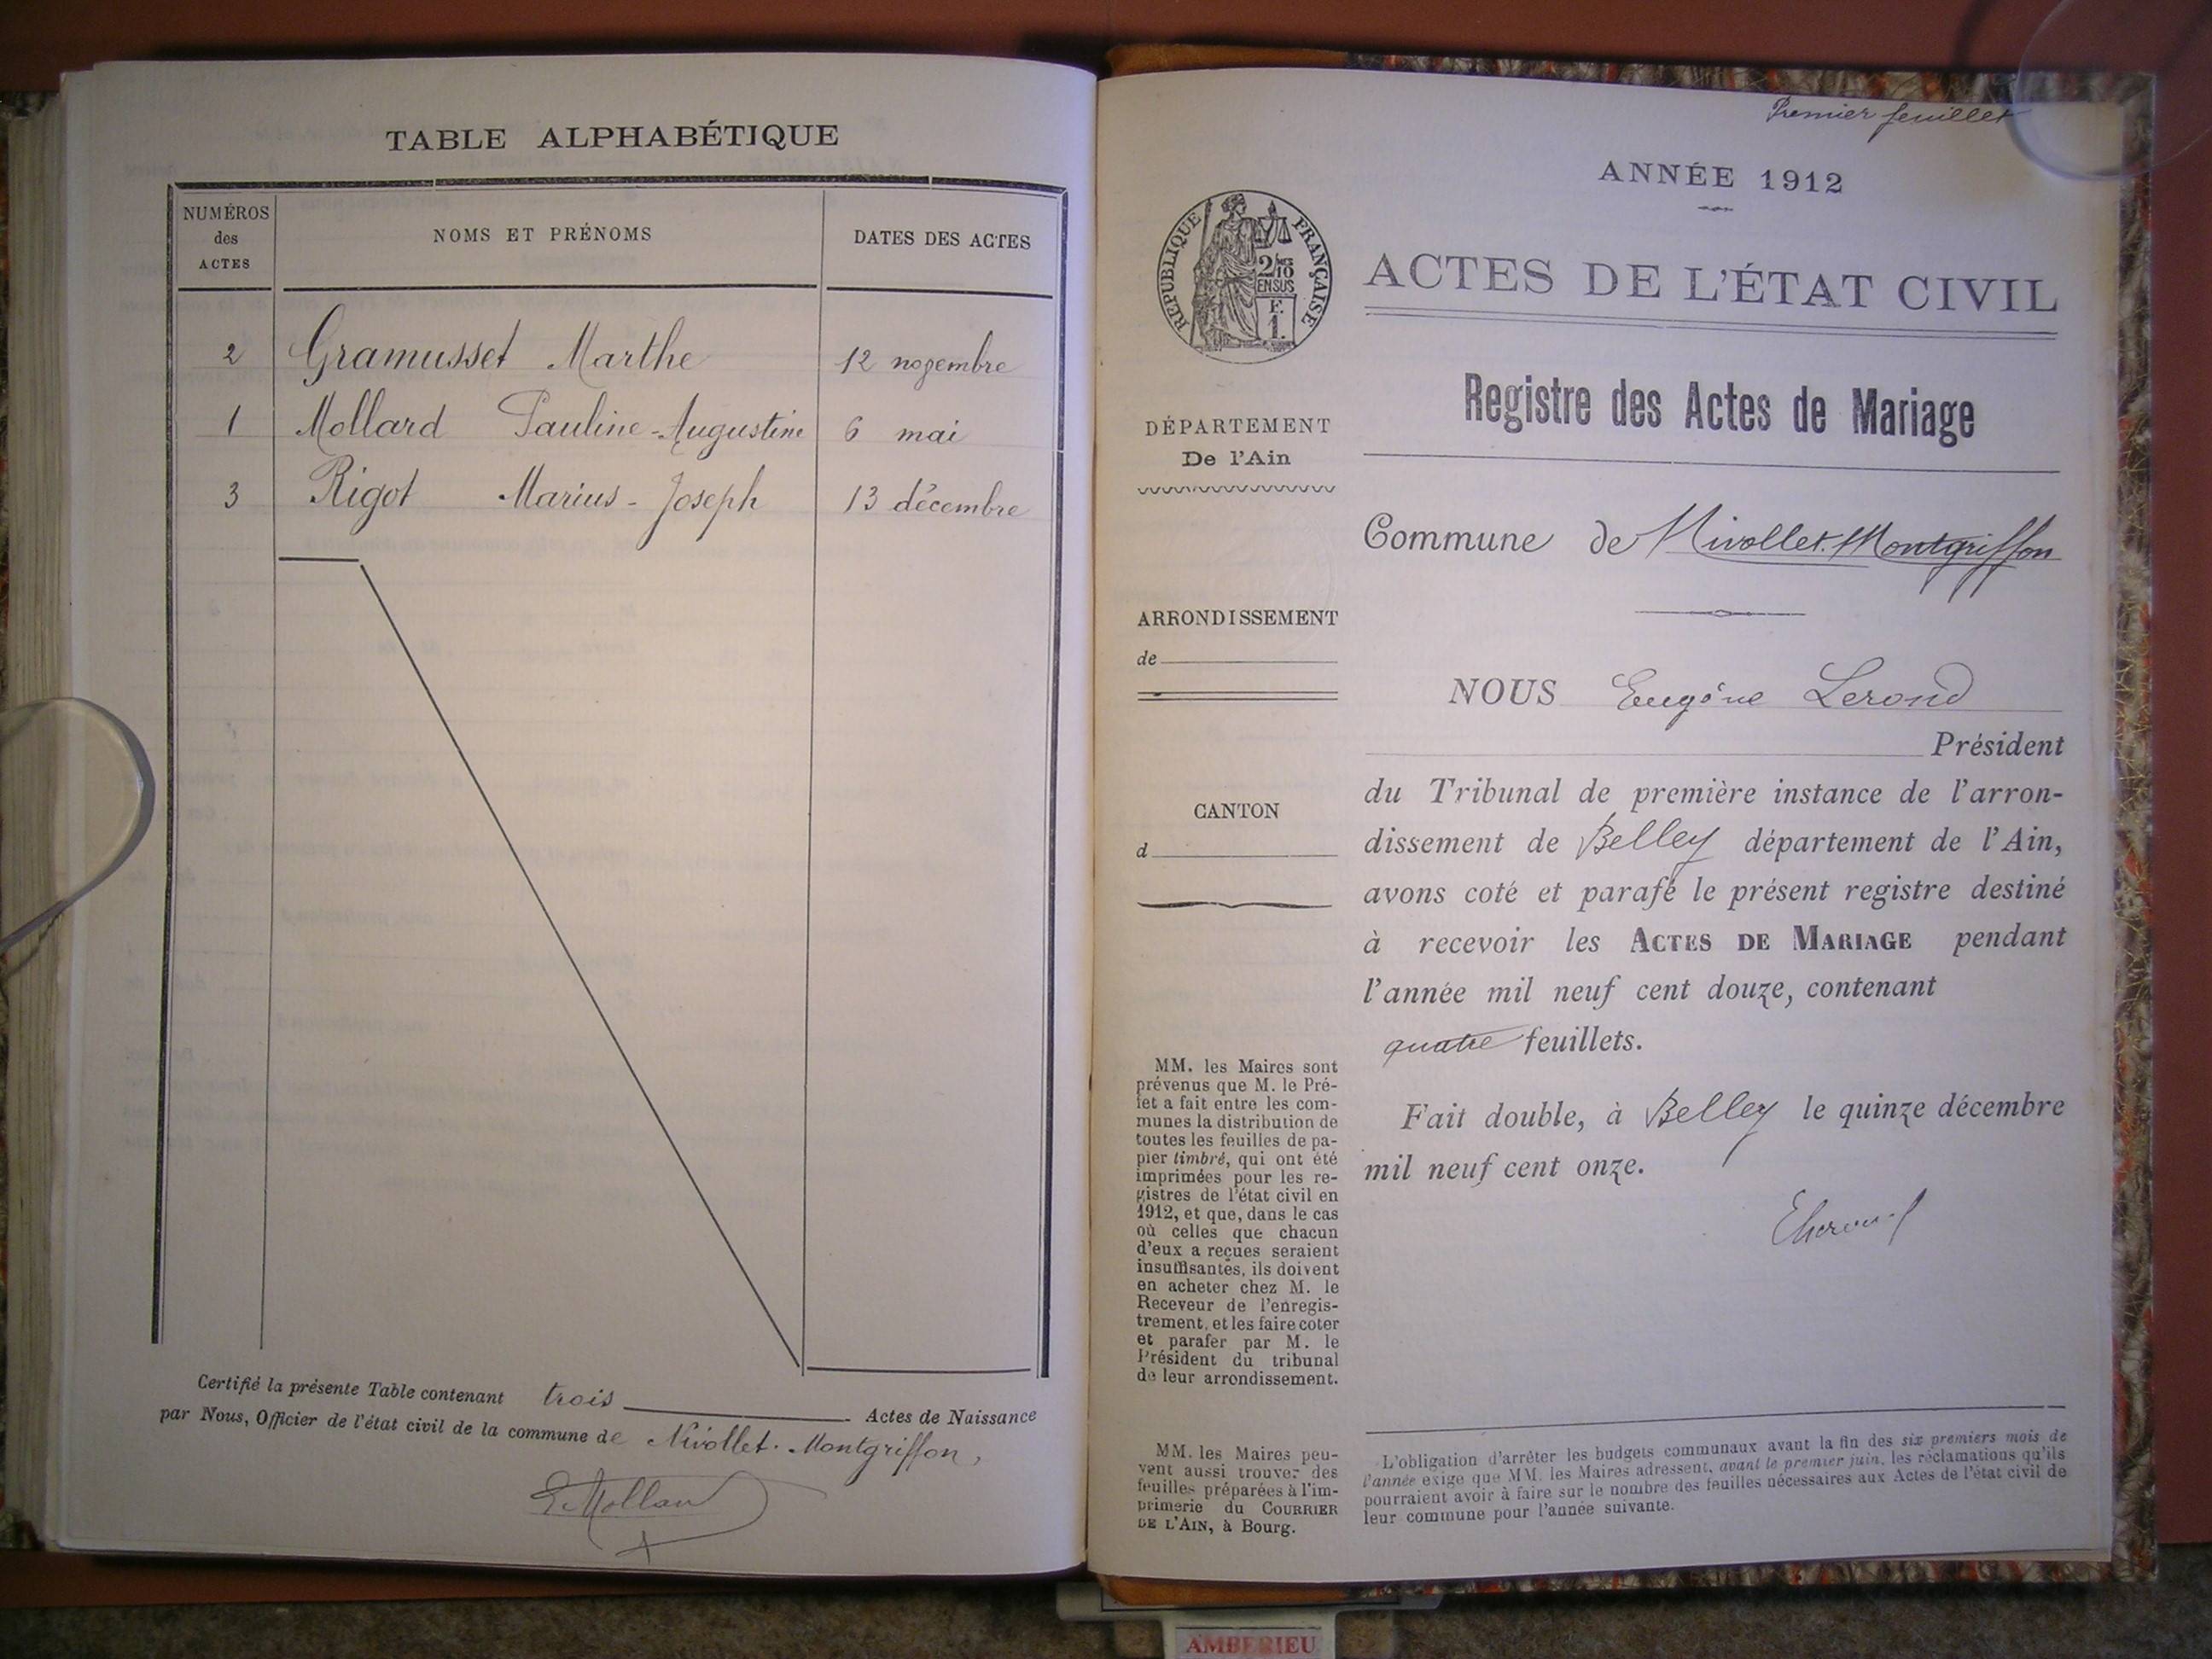 TABLE ALPHABÉTIQUE
NUMÉROS
des
ACTES
NOMS ET PRÉNOMS
DATES DES ACTES
2 Gramusset Marthe 12 novembre
1 Mollard Pauline-Augustine 6 mai
3 Rigot Marius-Joseph 13 décembre
Certifié la présente Table contenant trois Actes de Naissance
par Nous, Officier de l'état civil de la commune de Nivollet-Montgriffon,
Premier feuillet
ANNÉE 1912
RÉPUBLIQUE FRANÇAISE
2/10
EN SUS
F.
1.
ACTES DE L'ÉTAT CIVIL
Registre des Actes de Mariage
DÉPARTEMENT
De l'Ain
Commune de Nivollet-Montgriffon
ARRONDISSEMENT
de
NOUS Eugène Lerond
Président
du Tribunal de première instance de l'arron-
dissement de Belley département de l'Ain,
avons coté et parafé le présent registre destiné
à recevoir les ACTES DE MARIAGE pendant
l'année mil neuf cent douze, contenant
quatre feuillets.
Fait double, à Belley le quinze décembre
mil neuf cent onze.
CANTON
d
MM. les Maires sont
prévenus que M. le Pré-
fet a fait entre les com-
munes la distribution de
toutes les feuilles de pa-
pier timbré, qui ont été
imprimées pour les re-
gistres de l'état civil en
1912, et que, dans le cas
où celles que chacun
d'eux a reçues seraient
insuffisantes, ils doivent
en acheter chez M. le
Receveur de l'enregis-
trement, et les faire coter
et parafer par M. le
Président du tribunal
de leur arrondissement.
MM. les Maires peu-
vent aussi trouver des
feuilles préparées à l'im-
primerie du COURRIER
DE L'AIN, à Bourg.
L'obligation d'arrêter les budgets communaux avant la fin des six premiers mois de
l'année exige que MM. les Maires adressent, avant le premier juin, les réclamations qu'ils
pourraient avoir à faire sur le nombre des feuilles nécessaires aux Actes de l'état civil de
leur commune pour l'année suivante.
AMBERIEU